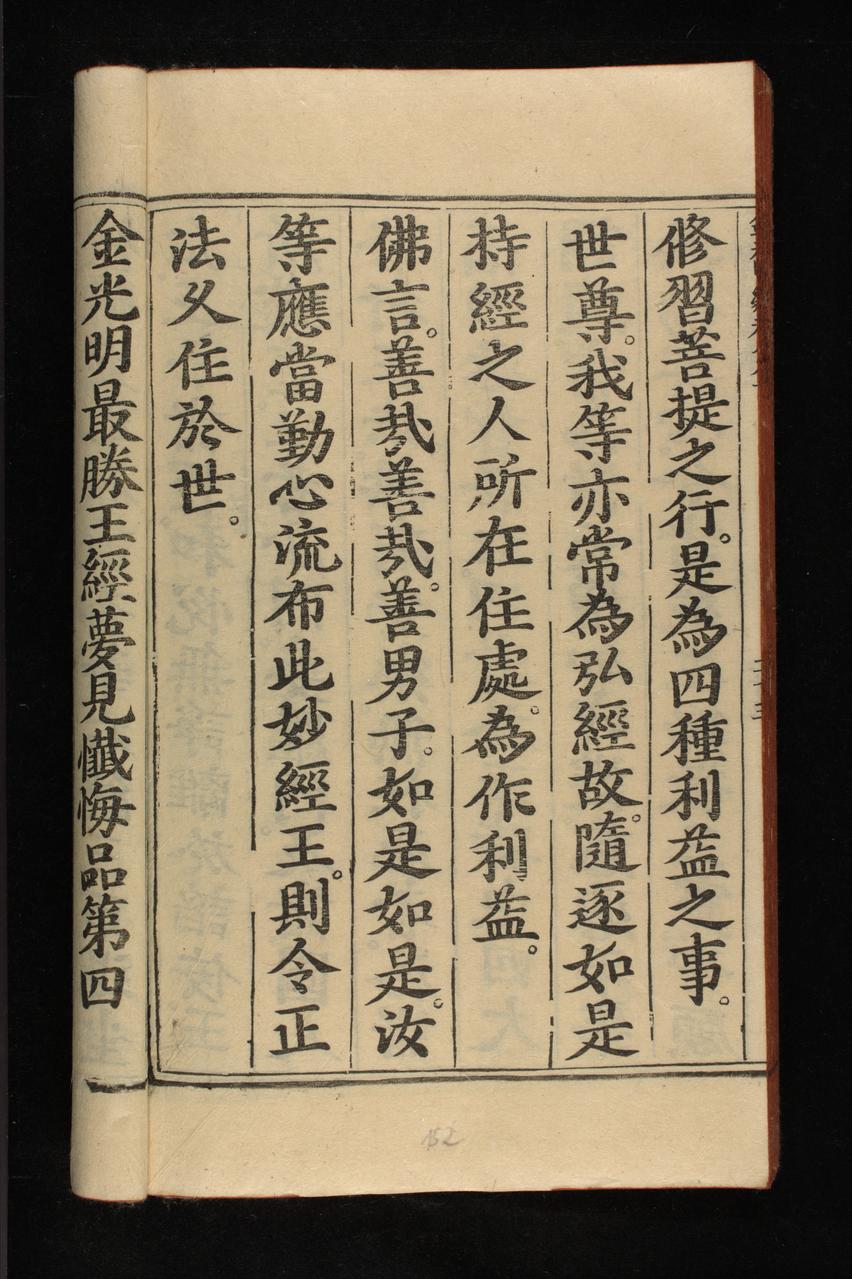 修習菩提之行。是為四種利益之事。
世尊。我等亦常為弘經故。隨逐如是
持經之人所在住處。為作利益。
佛言。善㦲善㦲。善男子。如是如是。汝
等應當勤心流布此妙經王。則令正
法久住於世。
金光明最勝王經夢見懺悔品第四
152